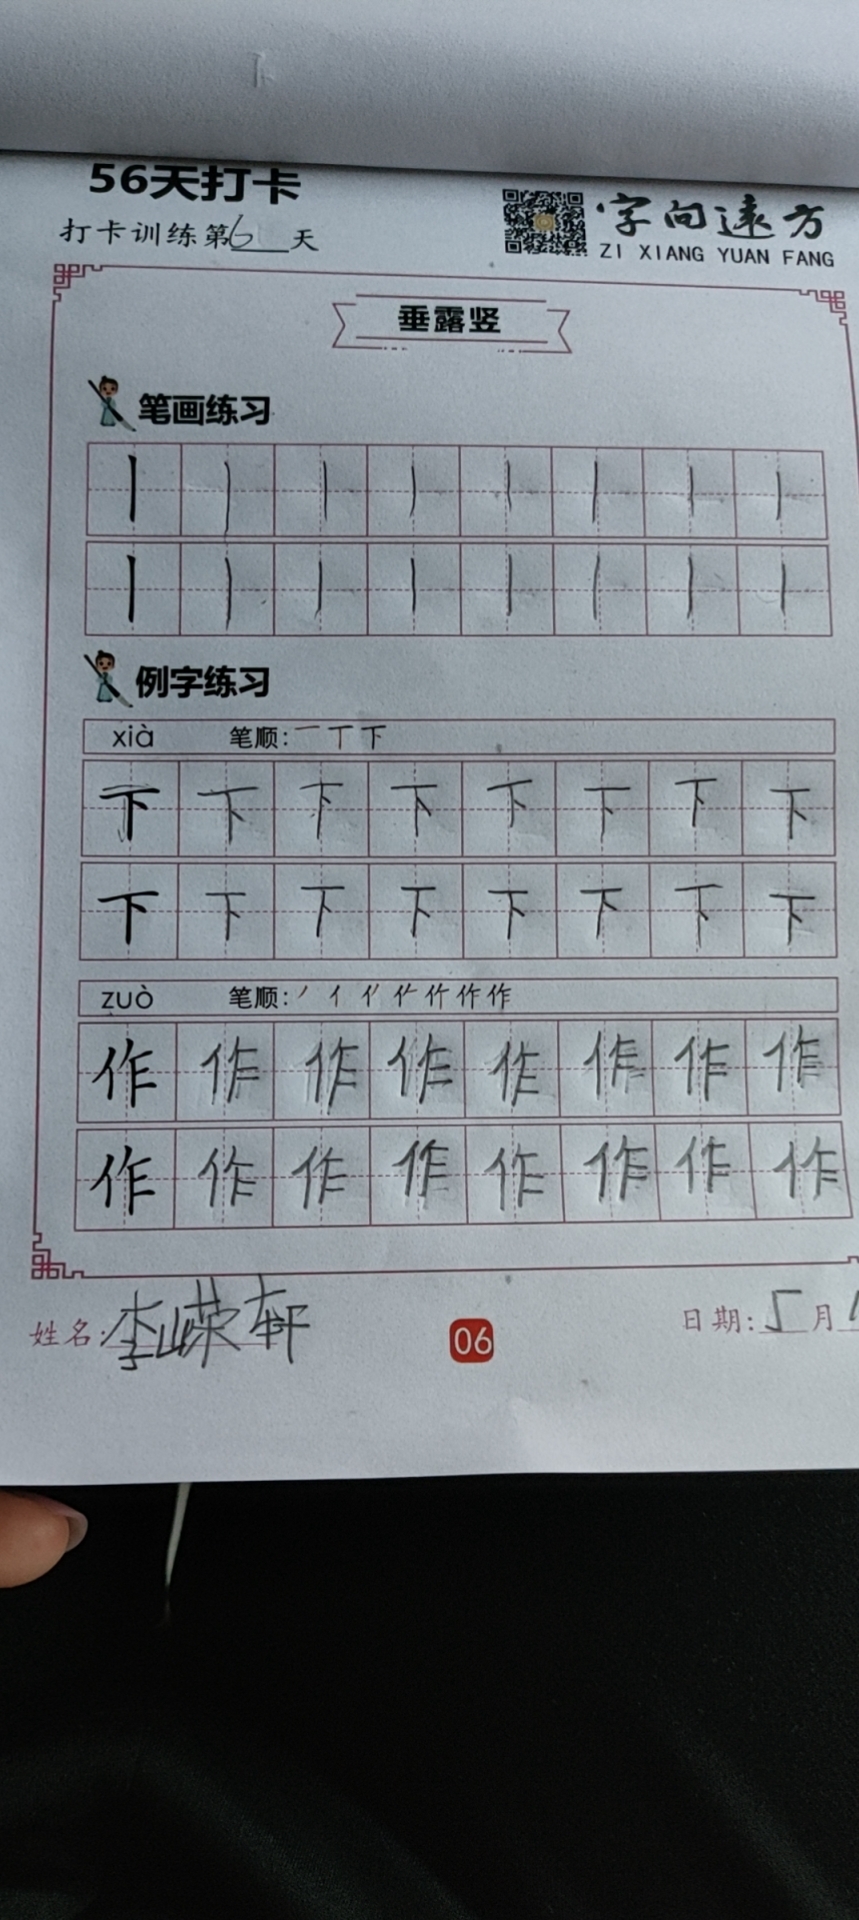 56天打卡
打卡训练第6天
字向远方
ZI XIANG YUAN FANG
垂露竖
笔画练习
丨 丨 丨 丨 丨 丨 丨 丨
丨 丨 丨 丨 丨 丨 丨 丨
例字练习
xià 笔顺:一 丅 下
下 下 下 下 下 下 下 下
下 下 下 下 下 下 下 下
zuò 笔顺:丿 亻 作
作 作 作 作 作 作 作 作
作 作 作 作 作 作 作 作
姓名:李嵘轩
06
日期:5月